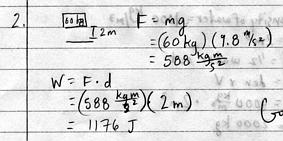 2. 60 kg F = mg
I 2m = (60 kg)(9.8 m/s²)
= 588 kg m/s²
W = F · d
= (588 kg m/s²)(2 m)
= 1176 J